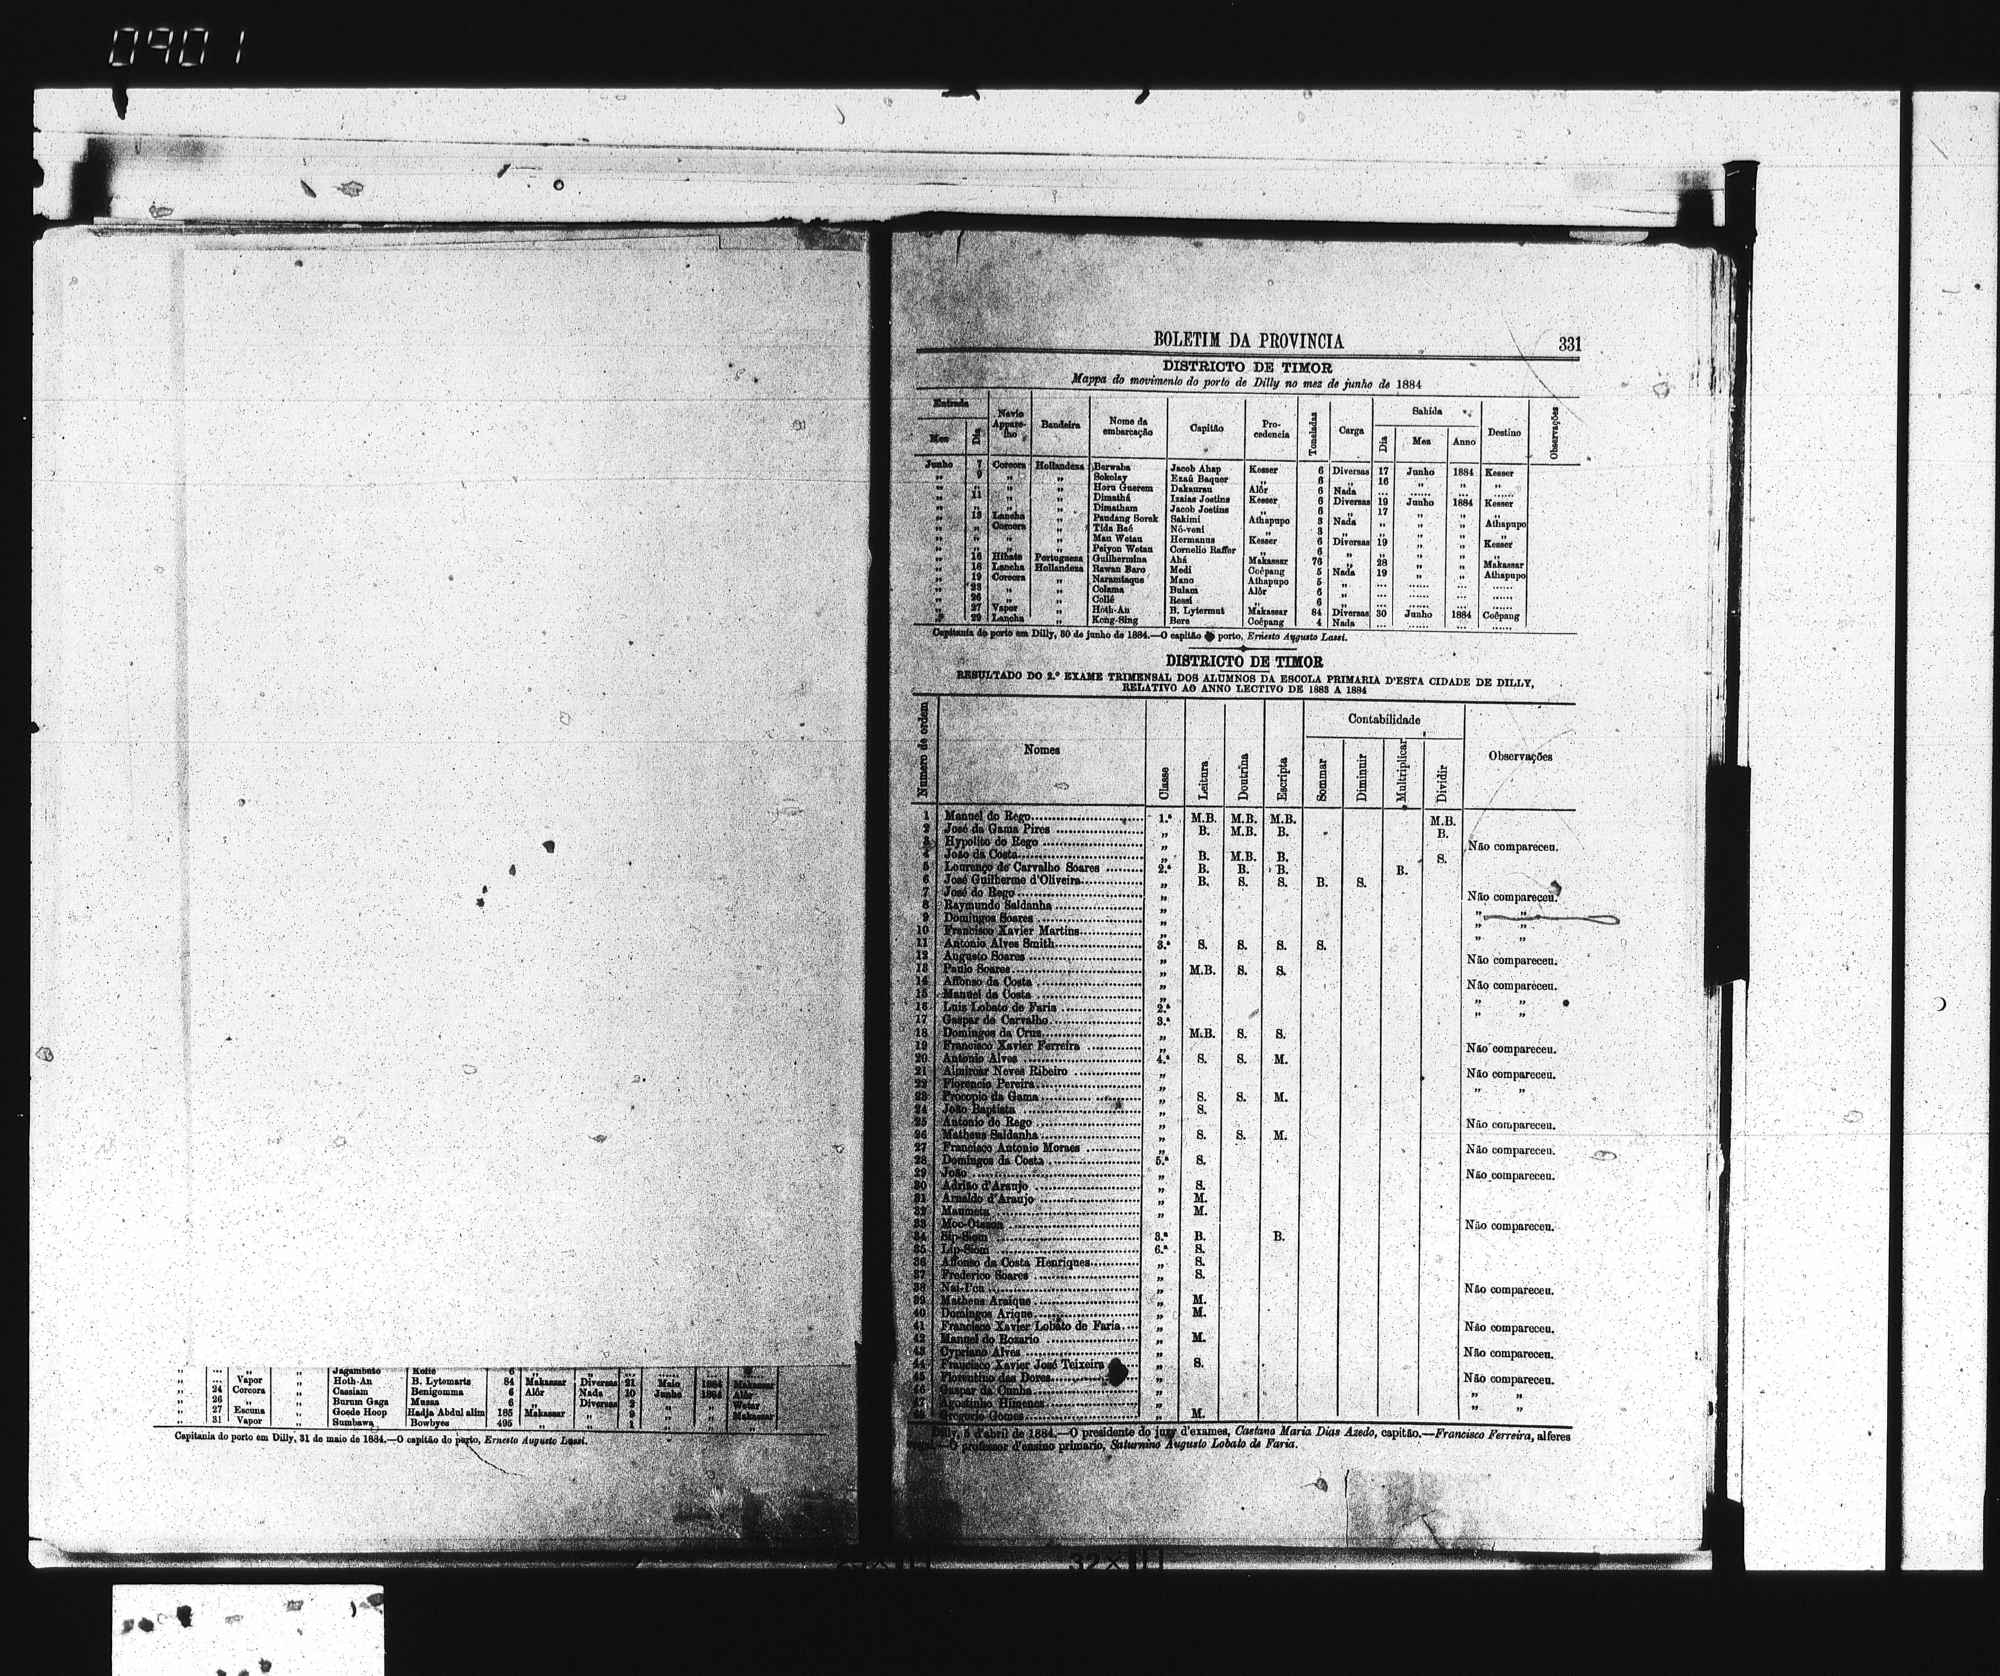 0901
„ ... „ „ Jagambato Kotté 6 „ „ ... ......
„ ... Vapor „ Hoth-An B. Lytemarts 84 Makassar Diversas 21 Maio 1884 Makassar
„ 24 Corcora „ Cassiam Benigomma 6 Alôr Nada 10 Junho 1884 Alôr
„ 26 „ „ Burum Gaga Mussa 6 „ Diversas 2 „ „ Wetar
„ 27 Escuna „ Goede Hoop Hadja Abdul alim 185 Makassar „ 9 „ „ Makassar
„ 31 Vapor „ Sumbawa Bowbyes 495 „ „ 1 „ „ „
Capitania do porto em Dilly, 31 de maio de 1884.—O capitão do porto, Ernesto Augusto Lassi.
BOLETIM DA PROVINCIA 331
DISTRICTO DE TIMOR
Mappa do movimento do porto de Dilly no mez de junho de 1884
Entrada Navio Apparelho Bandeira Nome da embarcação Capitão Procedencia Toneladas Carga Sahida Destino Observações
Mez Dia Dia Mez Anno
Junho 7 Corcora Hollandeza Berwaba Jacob Ahap Kesser 6 Diversas 17 Junho 1884 Kesser
„ 9 „ „ Sokolay Ezaû Baquer „ 6 „ 16 „ „ „
„ „ „ „ Horu Guerem Dakaurau Alôr 6 Nada ... ...... ... ......
„ 11 „ „ Dimathá Izaias Joetins Kesser 6 Diversas 19 Junho 1884 Kesser
„ „ „ „ Dimatham Jacob Joetins „ 6 „ 17 „ „ „
„ 13 Lancha „ Paudang Sorek Sakimi Athapupo 3 Nada „ „ „ Athapupo
„ „ Corcora „ Tida Baé Nó-veni „ 3 „ „ „ „ „
„ „ „ „ Man Wetau Hermanus Kesser 6 Diversas 19 „ „ Kesser
„ „ „ „ Peiyon Wetau Cornelio Raffer „ 6 „ „ „ „ „
„ 16 Hibate Portugueza Guilhermina Ahá Makassar 76 „ 28 „ „ Makassar
„ 18 Lancha Hollandeza Rawan Baro Medi Coêpang 5 Nada 19 „ „ Athapupo
„ 19 Corcora „ Naramtaque Mano Athapupo 5 „ ... ...... ... ......
„ 23 „ „ Colama Bulam Alôr 6 „ ... ...... ... ......
„ 26 „ „ Collé Rossi „ 6 „ ... ...... ... ......
„ 27 Vapor „ Hoth-An B. Lytermut Makassar 84 Diversas 30 Junho 1884 Coêpang
„ 29 Lancha „ Kong-Sing Bere Coêpang 4 Nada ... ...... ... ......
Capitania do porto em Dilly, 30 de junho de 1884.—O capitão do porto, Ernesto Augusto Lassi.
DISTRICTO DE TIMOR
RESULTADO DO 2.º EXAME TRIMENSAL DOS ALUMNOS DA ESCOLA PRIMARIA D'ESTA CIDADE DE DILLY,
RELATIVO AO ANNO LECTIVO DE 1883 A 1884
Numero de ordem Nomes Classe Leitura Doutrina Escripta Contabilidade Observações
Sommar Diminuir Multriplicar Dividir
1 Manuel do Rego 1.ª M.B. M.B. M.B. M.B.
2 José da Gama Pires „ B. M.B. B. B.
3 Hypolito do Rego „ Não compareceu.
4 João da Costa „ B. M.B. B. S.
5 Lourenço de Carvalho Soares 2.ª B. B. B. B.
6 José Guilherme d'Oliveira „ B. S. S. B. S.
7 José do Rego „ Não compareceu.
8 Raymundo Saldanha „ „ „
9 Domingos Soares „ „ „
10 Francisco Xavier Martins „ „ „
11 Antonio Alves Smith 3.ª S. S. S. S.
12 Augusto Soares „ Não compareceu.
13 Paulo Soares „ M.B. S. S.
14 Affonso da Costa „ Não compareceu.
15 Manuel da Costa „ „ „
16 Luis Lobato de Faria 2.ª „ „
17 Gaspar de Carvalho 3.ª
18 Domingos da Cruz „ M.B. S. S.
19 Francisco Xavier Ferreira „ Não compareceu.
20 Antonio Alves 4.ª S. S. M.
21 Almiroar Neves Ribeiro „ Não compareceu.
22 Florencio Pereira „ „ „
23 Procopio da Gama „ S. S. M.
24 João Baptista „ S.
25 Antonio do Rego „ Não compareceu.
26 Matheus Saldanha „ S. S. M.
27 Francisco Antonio Moraes „ Não compareceu.
28 Domingos da Costa 5.ª S.
29 João „ Não compareceu.
30 Adrião d'Araujo „ S.
31 Arnaldo d'Araujo „ M.
32 Maumeta „ M.
33 Moc-Otsson „ Não compareceu.
34 Sip-Siom 3.ª B. B.
35 Lip-Siom 6.ª S.
36 Affonso da Costa Henriques „ S.
37 Frederico Soares „ S.
38 Nai-Pon „ Não compareceu.
39 Matheus Araique „ M.
40 Domingos Arique „ M.
41 Francisco Xavier Lobato de Faria „ Não compareceu.
42 Manuel do Rozario „ M.
43 Cypriano Alves „ Não compareceu.
44 Francisco Xavier José Teixeira „ S.
45 Florentino das Dores „ Não compareceu.
46 Gaspar da Cunha „ „ „
47 Agostinho Himenes „ „ „
48 Gregorio Gomes „ M.
Dilly, 5 d'abril de 1884.—O presidente do jury d'exames, Caetano Maria Dias Azedo, capitão.—Francisco Ferreira, alferes
vogal.—O professor d'ensino primario, Saturnino Augusto Lobato de Faria.